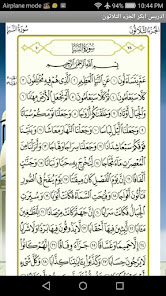 Airplane mode 10:44 PM
ادريس ابكر الجزء الثلاثون
الجزء الثلاثون سورة النبإ
سورة النبإ
بسم الله الرحمن الرحيم
عم يتساءلون ١ عن النبإ العظيم ٢ الذي هم فيه مختلفون ٣
كلا سيعلمون ٤ ثم كلا سيعلمون ٥ ألم نجعل الأرض مهادا ٦
والجبال أوتادا ٧ وخلقناكم أزواجا ٨ وجعلنا نومكم سباتا ٩
وجعلنا الليل لباسا ١٠ وجعلنا النهار معاشا ١١ وبنينا فوقكم
سبعا شدادا ١٢ وجعلنا سراجا وهاجا ١٣ وأنزلنا من المعصرات
ماء ثجاجا ١٤ لنخرج به حبا ونباتا ١٥ وجنات ألفافا ١٦
إن يوم الفصل كان ميقاتا ١٧ يوم ينفخ في الصور فتأتون أفواجا
١٨ وفتحت السماء فكانت أبوابا ١٩ وسيرت الجبال فكانت سرابا
٢٠ إن جهنم كانت مرصادا ٢١ للطاغين مآبا ٢٢ لابثين فيها
أحقابا ٢٣ لا يذوقون فيها بردا ولا شرابا ٢٤ إلا حميما
وغساقا ٢٥ جزاء وفاقا ٢٦ إنهم كانوا لا يرجون حسابا ٢٧
وكذبوا بآياتنا كذابا ٢٨ وكل شيء أحصيناه كتابا
٢٩ فذوقوا فلن نزيدكم إلا عذابا ٣٠